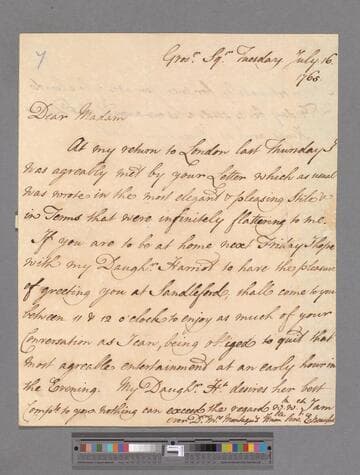 Gros.r Sq.r Tuesday July 16
1765
Dear Madam
At my return to London last Thursday I
was agreably met by your Letter which as usual
was wrote in the most elegant & pleasing Stile &
in Terms that were infinitely flattering to me.
If you are to be at home next Friday I hope
with my Daugh.r Harriot to have the pleasure
of greeting you at Sandleford, shall come to you
between 11 & 12 o'clock to enjoy as much of your
Conversation as I can, being obliged to quit that
most agreable entertainment at an early hour in
the Evening. My Daugh.r H.t desires her best
Comp.ts to you nothing can exceed the regard w.th w.ch I am
ever D.r M.rs Montagu's